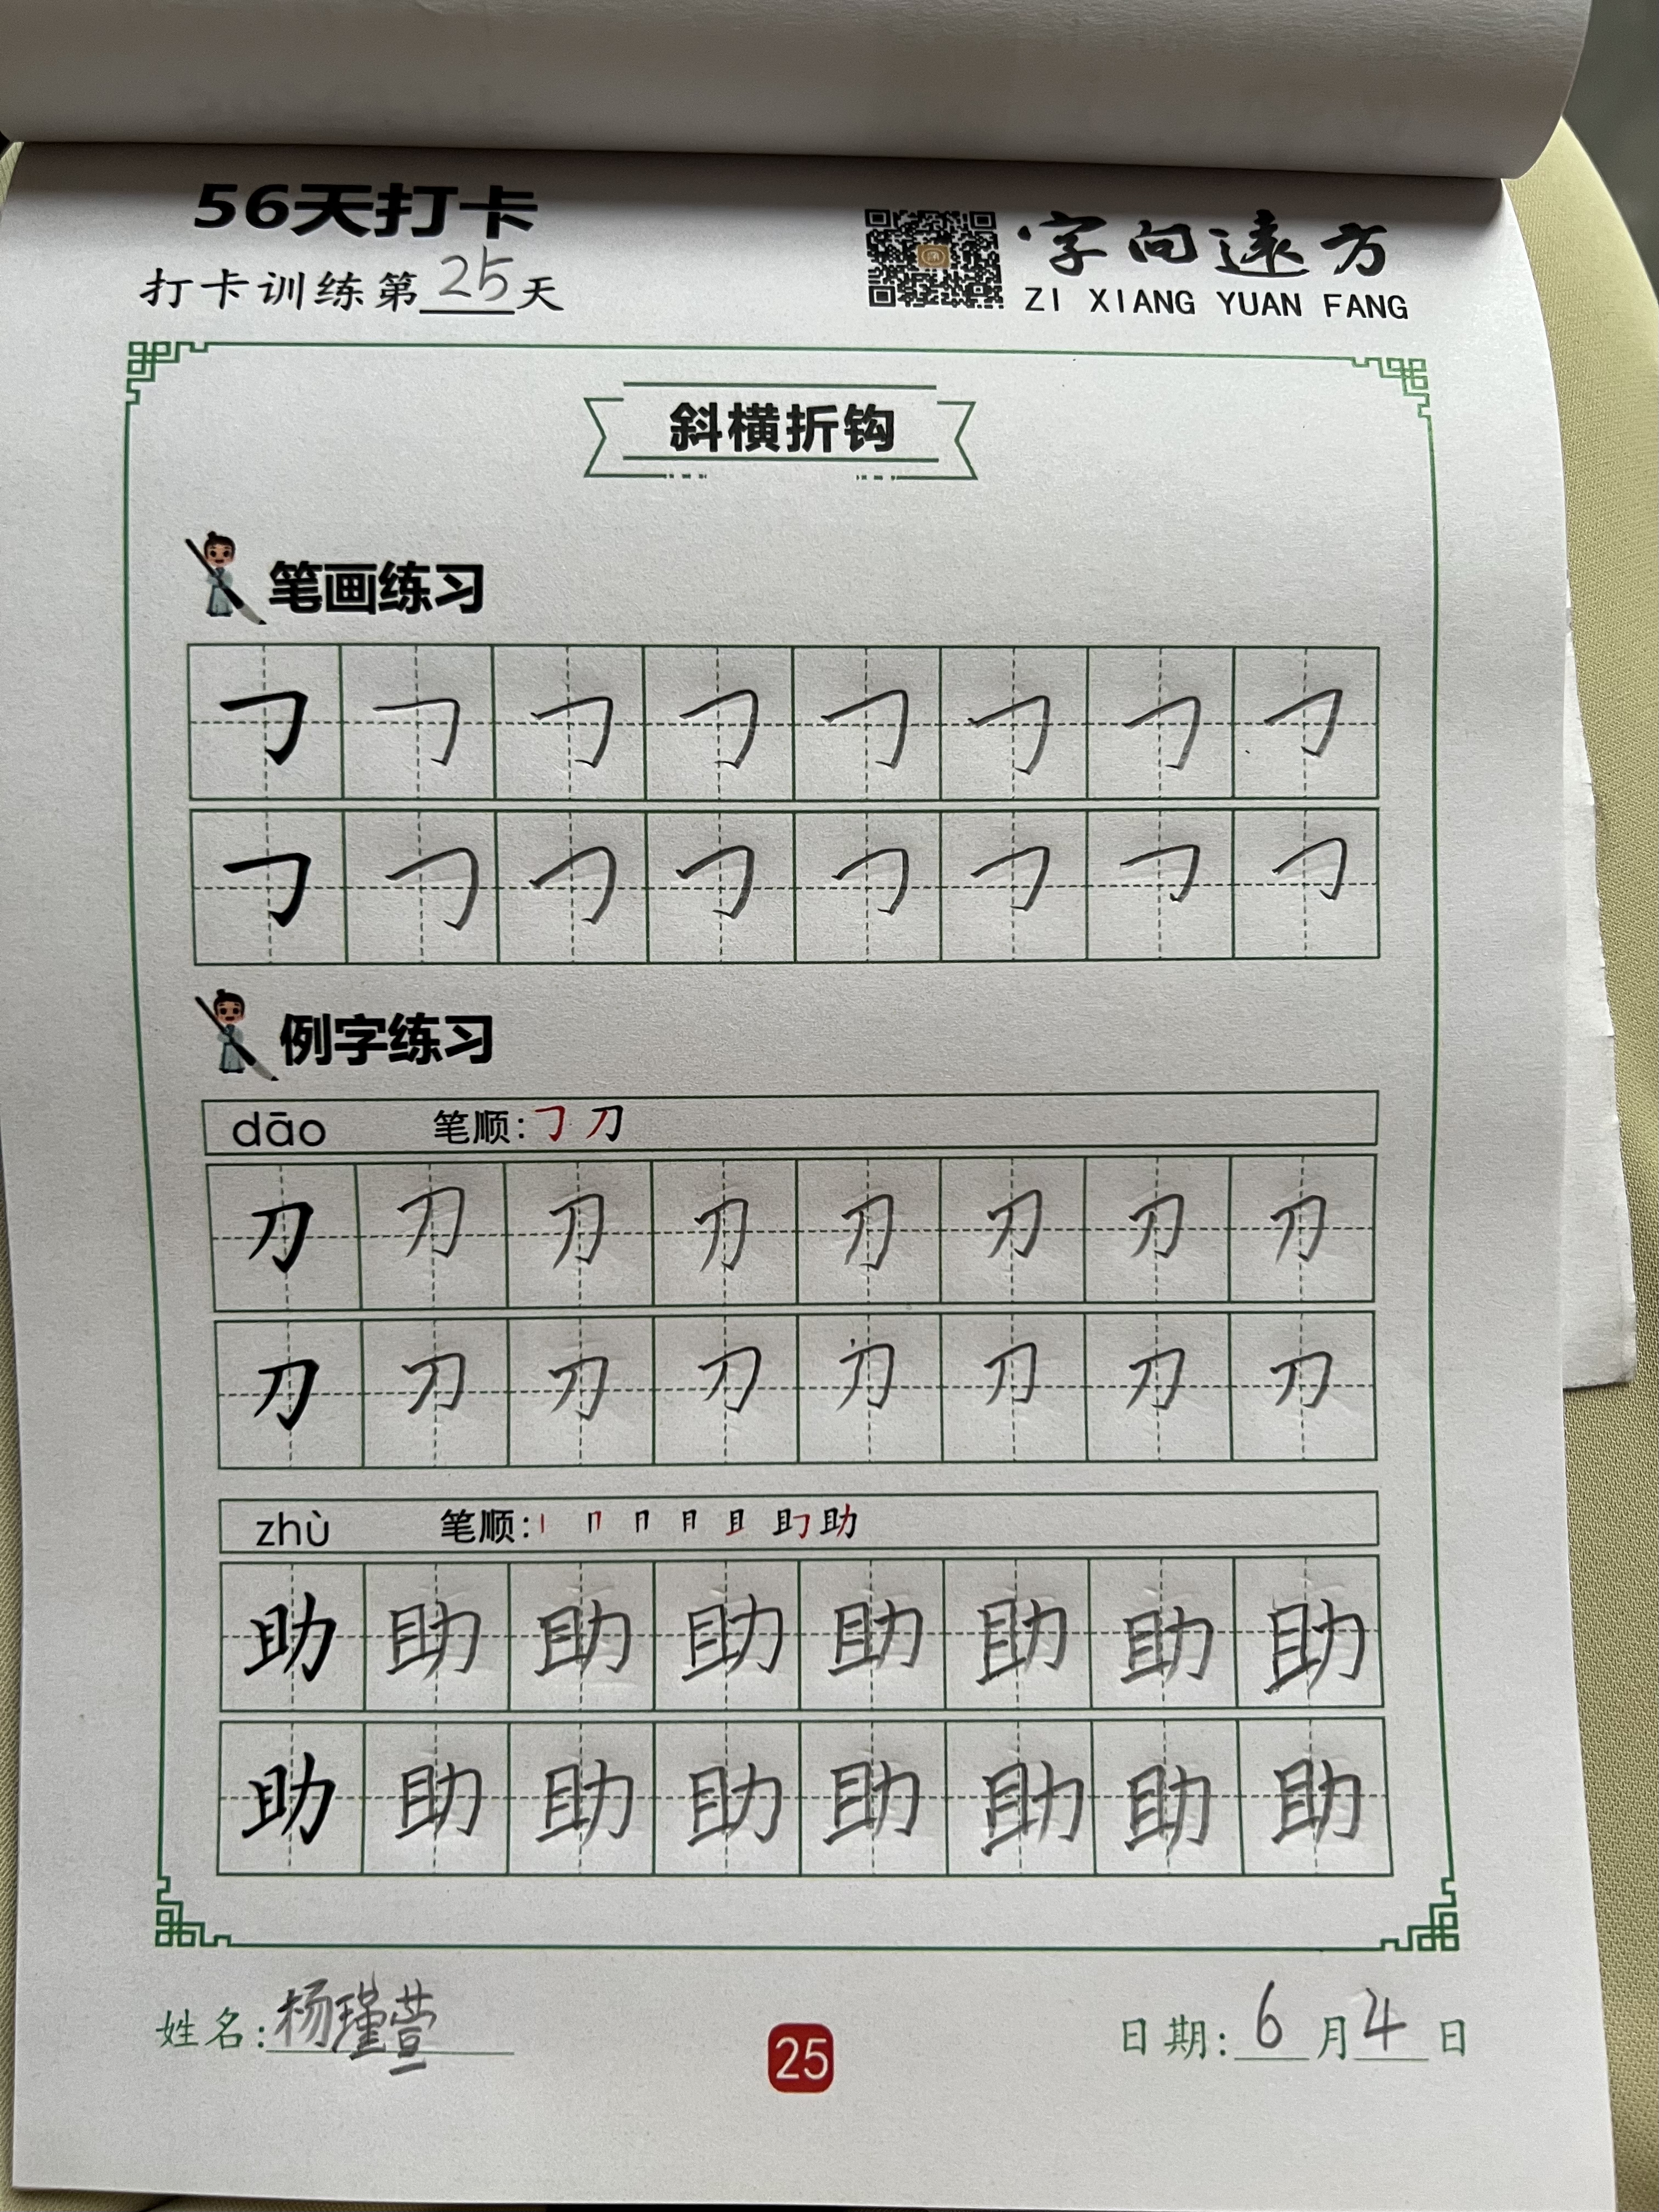 56天打卡
打卡训练第25天
字向远方
ZI XIANG YUAN FANG
斜横折钩
笔画练习
㇆ ㇆ ㇆ ㇆ ㇆ ㇆ ㇆ ㇆
㇆ ㇆ ㇆ ㇆ ㇆ ㇆ ㇆ ㇆
例字练习
dāo 笔顺:㇆ 刀
刀 刀 刀 刀 刀 刀 刀 刀
刀 刀 刀 刀 刀 刀 刀 刀
zhù 笔顺:丨 冂 助
助 助 助 助 助 助 助 助
助 助 助 助 助 助 助 助
姓名:杨瑾萱
25
日期:6月4日